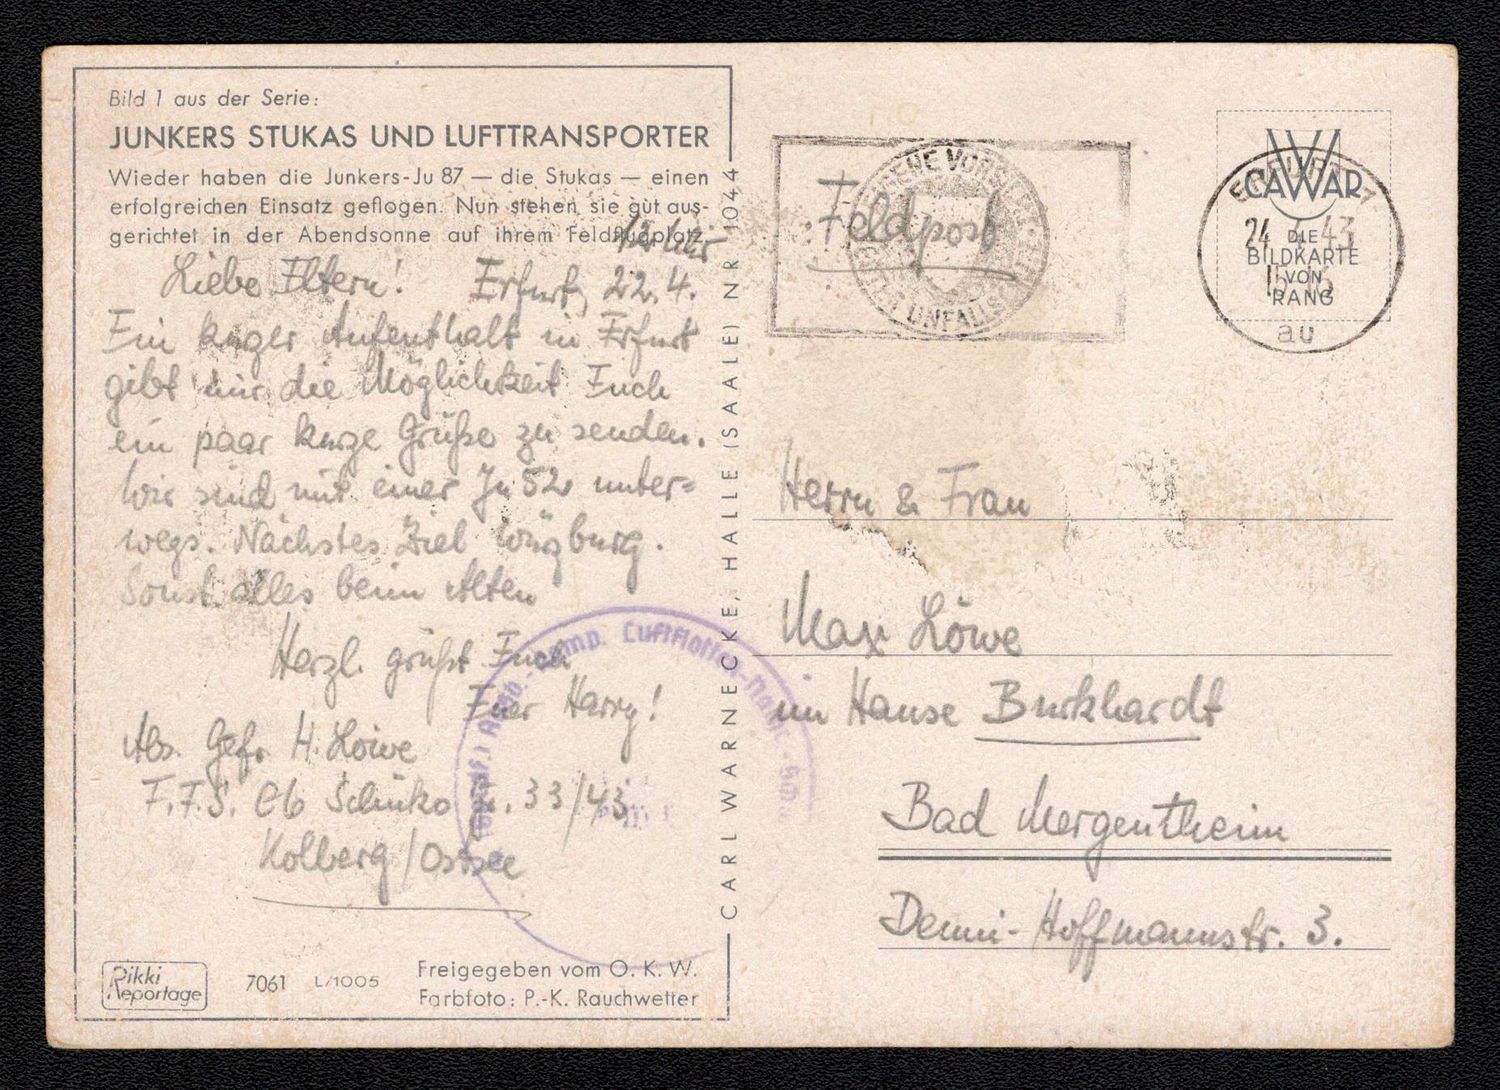 Bild 1 aus der Serie:
JUNKERS STUKAS UND LUFTTRANSPORTER
Wieder haben die Junkers-Ju 87 — die Stukas — einen
erfolgreichen Einsatz geflogen. Nun stehen sie gut aus-
gerichtet in der Abendsonne auf ihrem Feldflugplatz
Uhr
Liebe Eltern! Erfurt, 22.4.
Ein kurzer Aufenthalt in Erfurt
gibt mir die Möglichkeit Euch
ein paar kurze Grüße zu senden.
Wir sind mit einer Ju 52 unter=
wegs. Nächstes Ziel Würzburg.
Sonst alles beim Alten
Herzl. grüßt Euch
Euer Harry!
Abs. Gefr. H. Löwe
F.F.S. C16 Schüko 33/43
Kolberg/Ostsee
Rikki
Reportage
7061 L/1005
Freigegeben vom O. K. W.
Farbfoto: P.-K. Rauchwetter
CARL WARNECKE, HALLE (SAALE) NR 1044
Luftflotten-
Feldpost
EIGENE VORSICHT
UNFALLSCHUTZ
ERFURT
24 43
au
CAWAR
DIE
BILDKARTE
VON
RANG
Herrn & Frau
Max Löwe
im Hause Burkhardt
Bad Mergentheim
Hoffmannstr. 3.